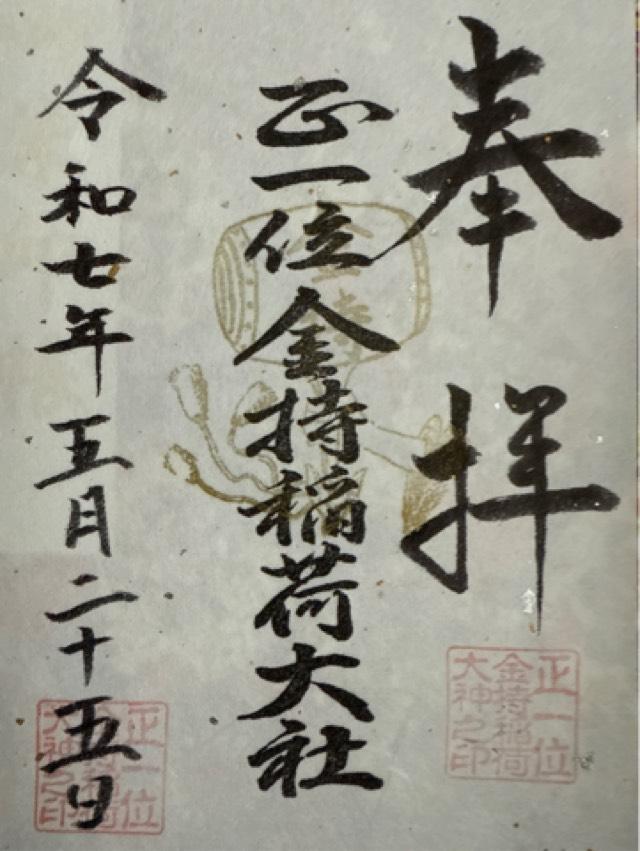 奉拝
正一位金持稲荷大社
令和七年五月二十五日
正一位
金持稲荷
大神之印
正一位
大神之印